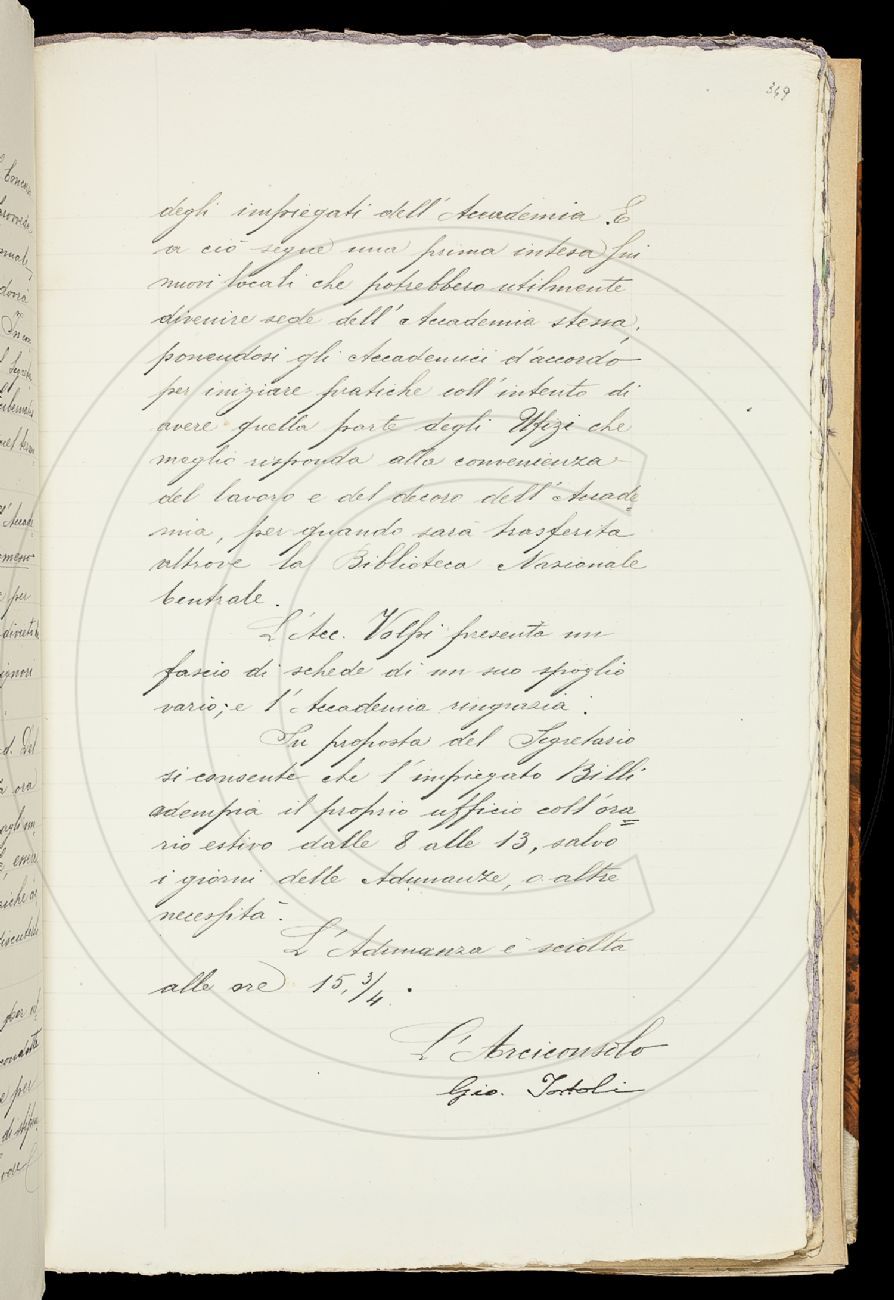 349
degli impiegati dell' Accademia. E
a ciò segue una prima intesa sui
nuovi locali che potrebbero utilmente
divenire sede dell' Accademia stessa,
ponendosi gli Accademici d'accordo
per iniziare pratiche coll' intento di
avere quella parte degli Ufizi che
meglio risponda alla convenienza
del lavoro e del decoro dell' Accade=
mia, per quando sarà trasferita
altrove la Biblioteca Nazionale
Centrale.
L'Acc. Volpi presenta un
fascio di schede di un suo spoglio
vario; e l' Accademia ringrazia.
Su proposta del Segretario
si consente che l' impiegato Billi
adempia il proprio ufficio coll' ora=
rio estivo dalle 8 alle 13, salvo
i giorni delle Adunanze, o altre
necessità.
L' Adunanza è sciolta
alle ore 15, 3/4.
L' Arciconsolo
Gio. Tortoli